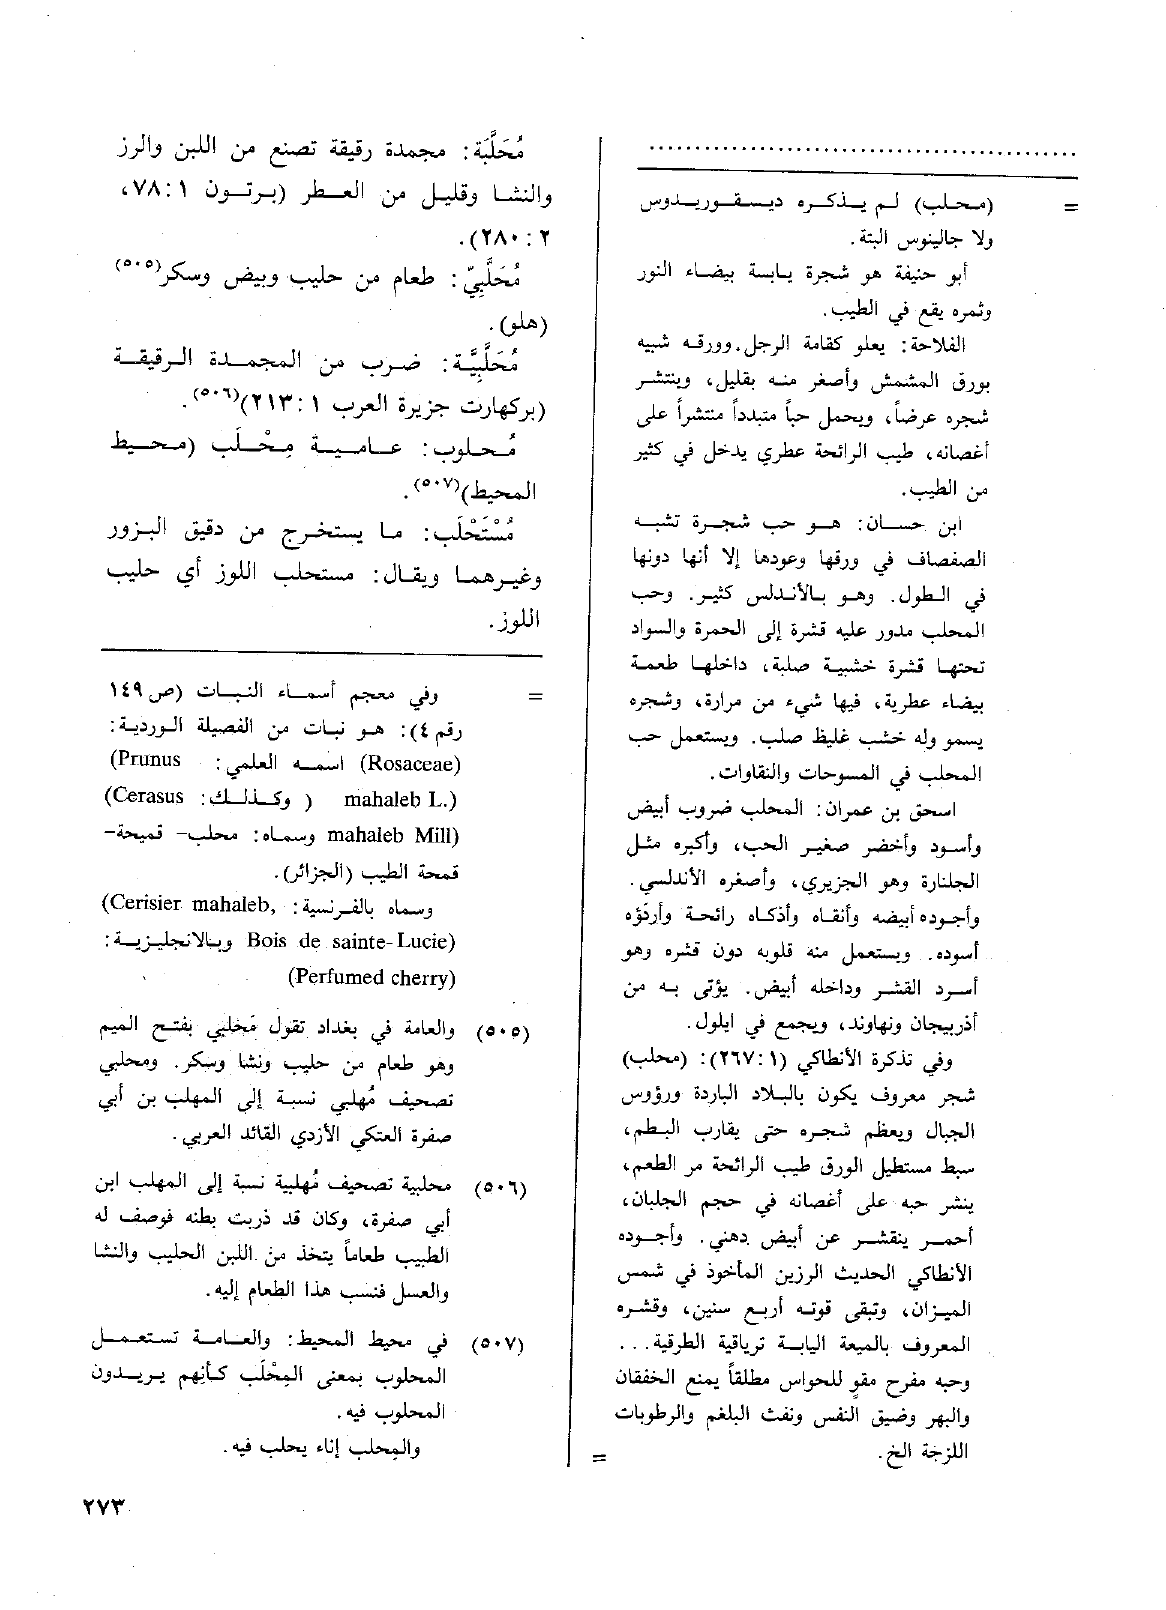 ..............................................
= (محلب) لم يذكره ديسقوريدوس
ولا جالينوس البتة.
أبو حنيفة هو شجرة يابسة بيضاء النور
وثمره يقع في الطيب.
الفلاحة: يعلو كقامة الرجل. وورقه شبيه
بورق المشمش وأصغر منه بقليل، وينتشر
شجره عرضاً، ويحمل حباً متبدداً منتشراً على
أغصانه، طيب الرائحة عطري يدخل في كثير
من الطيب.
ابن حسان: هو حب شجرة تشبه
الصفصاف في ورقها وعودها إلا أنها دونها
في الطول. وهو بالأندلس كثير. وحب
المحلب مدور عليه قشرة إلى الحمرة والسواد
تحتها قشرة خشبية صلبة، داخلها طعمة
بيضاء عطرية، فيها شيء من مرارة، وشجره
يسمو وله خشب غليظ صلب. ويستعمل حب
المحلب في المسوحات والنقاوات.
اسحق بن عمران: المحلب ضروب أبيض
وأسود وأخضر صغير الحب، وأكبره مثل
الجلنارة وهو الجزيري، وأصغره الأندلسي.
وأجوده أبيضه وأنقاه وأذكاه رائحة وأردؤه
أسوده. ويستعمل منه قلوبه دون قشره وهو
أسرد القشر وداخله أبيض. يؤتى به من
أذربيجان ونهاوند، ويجمع في ايلول.
وفي تذكرة الأنطاكي (١: ٢٦٧): (محلب)
شجر معروف يكون بالبلاد الباردة ورؤوس
الجبال ويعظم شجره حتى يقارب البطم،
سبط مستطيل الورق طيب الرائحة مر الطعم،
ينشر حبه على أغصانه في حجم الجلبان،
أحمر ينقشر عن أبيض دهني. وأجوده
الأنطاكي الحديث الرزين المأخوذ في شمس
الميزان، وتبقى قوته أربع سنين، وقشره
المعروف بالميعة اليابة ترياقية الطرقية...
وحبه مفرح مقوٍ للحواس مطلقاً يمنع الخفقان
والبهر وضيق النفس ونفث البلغم والرطوبات
اللزجة الخ. =
مُحَلَّبَة: مجمدة رقيقة تصنع من اللبن والرز
والنشا وقليل من العطر (برتون ١: ٧٨،
٢: ٢٨٠).
مُحَلَّبِيّ: طعام من حليب وبيض وسكر(٥٠٥)
(هلو).
مُحَلَّبِيَّة: ضرب من المجمدة الرقيقة
(بركهارت جزيرة العرب ١: ٢١٣)(٥٠٦).
مُحلوب: عامية مِحْلَب (محيط
المحيط)(٥٠٧).
مُسْتَحْلَب: ما يستخرج من دقيق البزور
وغيرهما ويقال: مستحلب اللوز أي حليب
اللوز.
= وفي معجم أسماء النبات (ص ١٤٩
رقم ٤): هو نبات من الفصيلة الوردية:
(Rosaceae) اسمه العلمي: (Prunus
mahaleb L.) ( وكذلك: (Cerasus
mahaleb Mill) وسماه: محلب- قميحة-
قمحة الطيب (الجزائر).
وسماه بالفرنسية: (Cerisier mahaleb,
Bois de sainte-Lucie) وبالانجليزية:
(Perfumed cherry)
(٥٠٥) والعامة في بغداد تقول مَحَلبي بفتح الميم
وهو طعام من حليب ونشا وسكر. ومحلبي
تصحيف مُهلبي نسبة إلى المهلب بن أبي
صفرة العتكي الأزدي القائد العربي.
(٥٠٦) محلبية تصحيف مُهلبية نسبة إلى المهلب ابن
أبي صفرة، وكان قد ذربت بطنه فوصف له
الطبيب طعاماً يتخذ من اللبن الحليب والنشا
والعسل فنسب هذا الطعام إليه.
(٥٠٧) في محيط المحيط: والعامة تستعمل
المحلوب بمعنى المِحْلَب كأنهم يريدون
المحلوب فيه.
والمِحلب إناء يحلب فيه.
٢٧٣